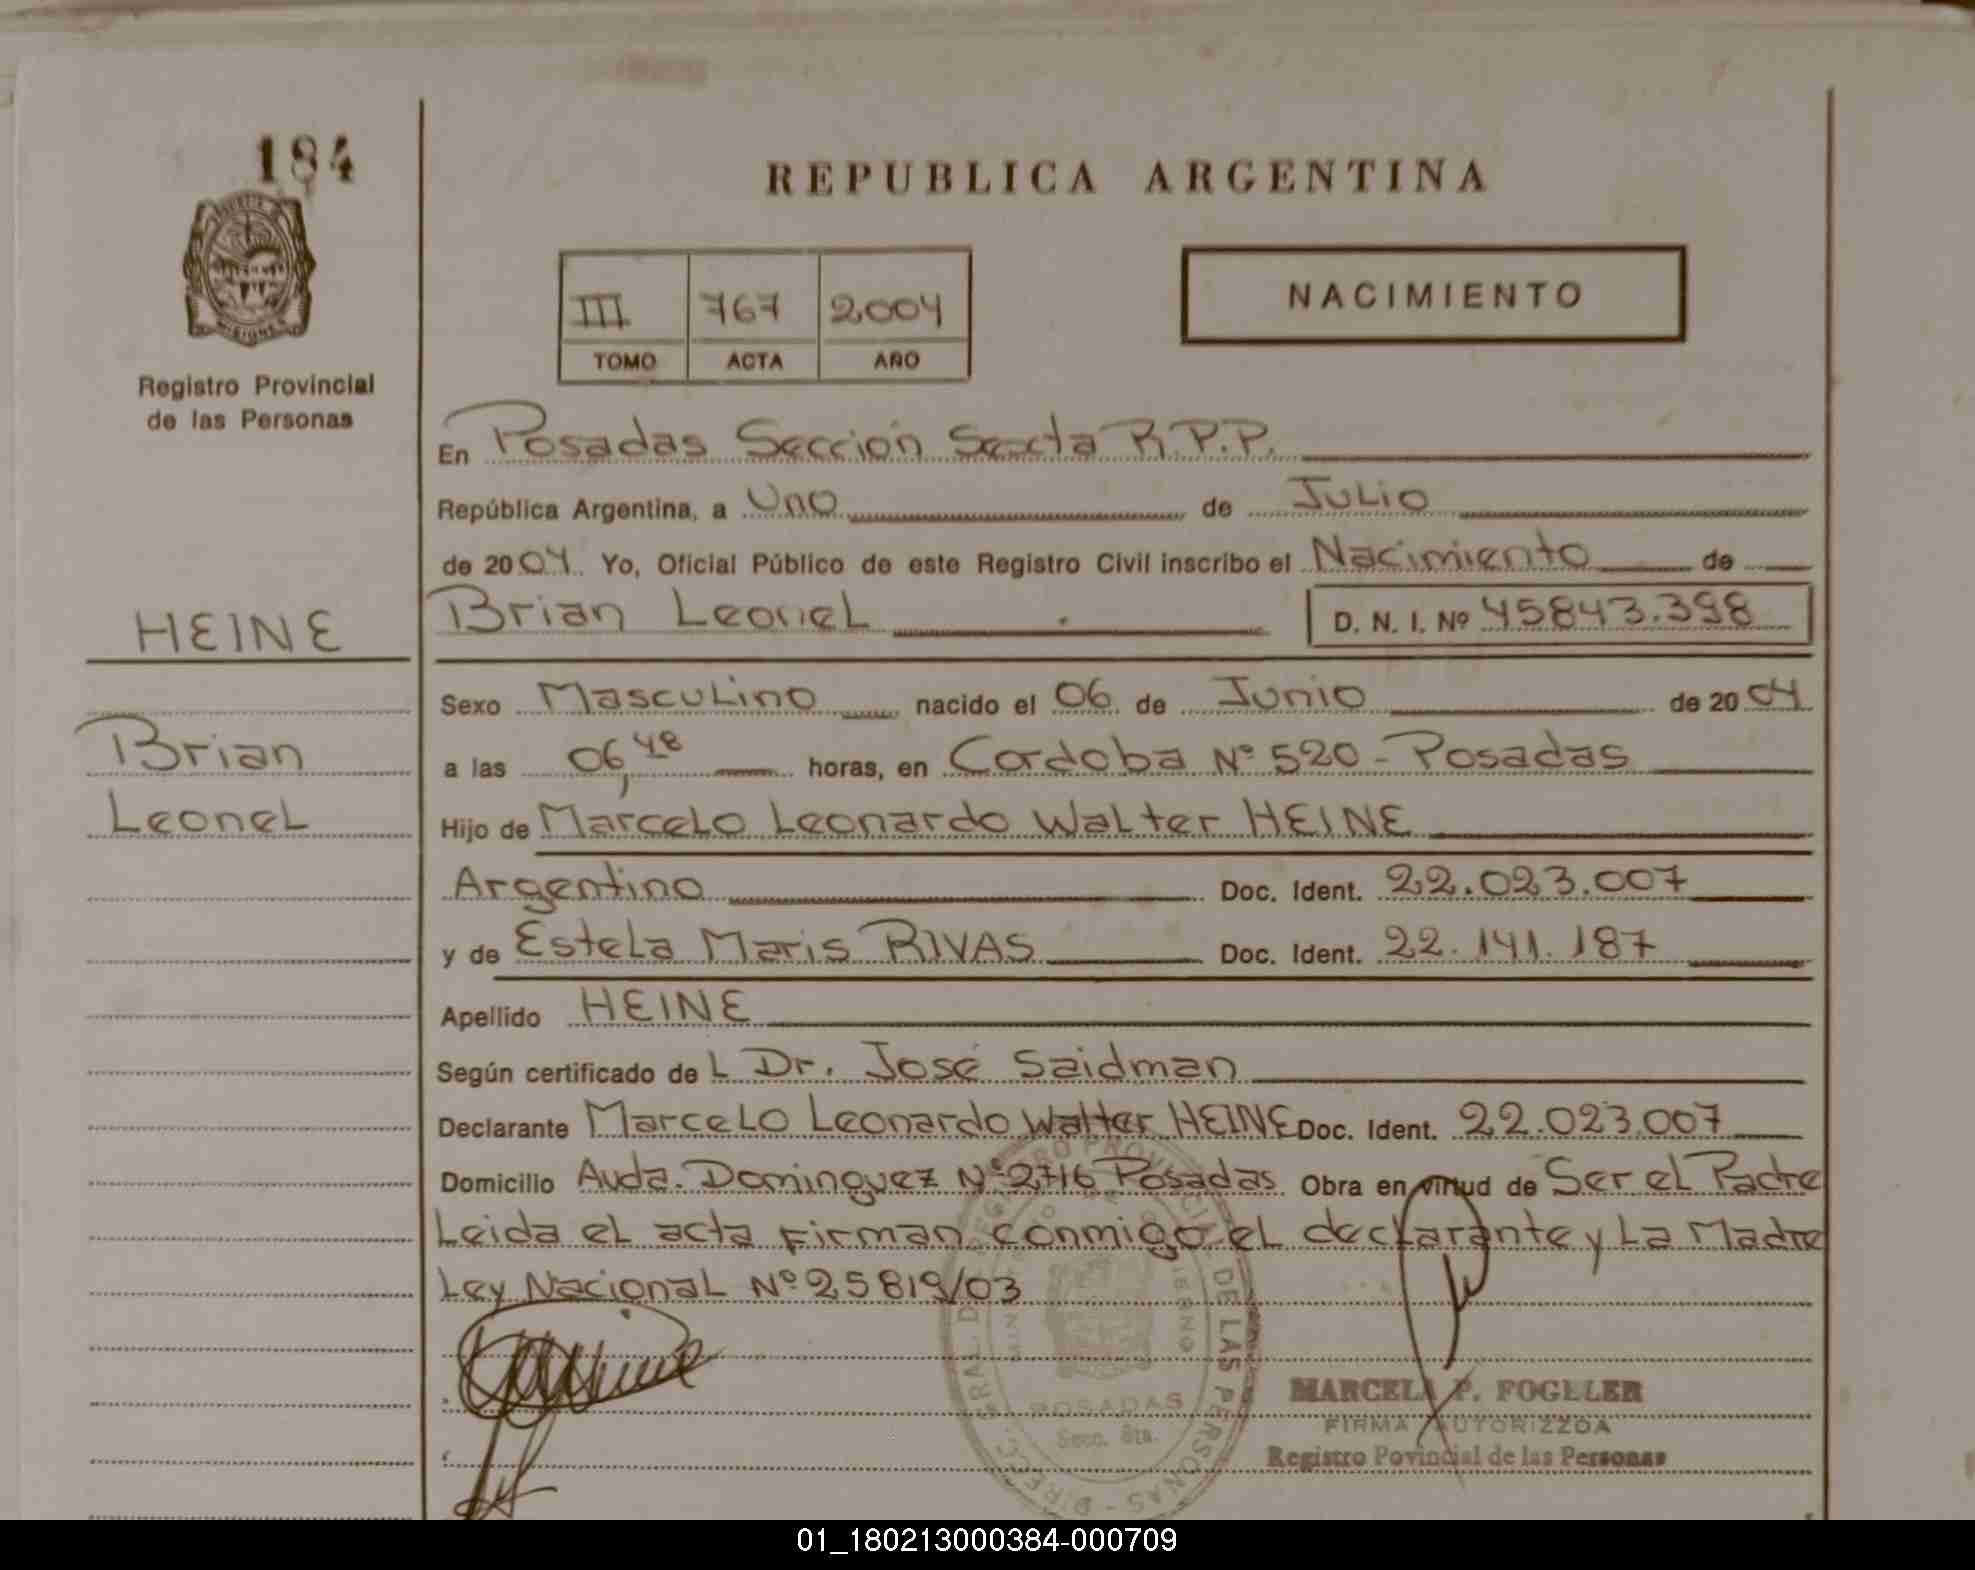 184
REPUBLICA ARGENTINA
MISIONES
Registro Provincial
de las Personas
III 767 2004
TOMO ACTA AÑO
NACIMIENTO
En Posadas Sección Sexta R.P.P.
República Argentina, a Uno de Julio
de 2004 Yo, Oficial Público de este Registro Civil inscribo el Nacimiento de
HEINE
Brian Leonel D. N. I. Nº 45843.398
Sexo Masculino nacido el 06 de Junio de 2004
Brian
a las 06,48 horas, en Cordoba Nº 520 - Posadas
Leonel
Hijo de Marcelo Leonardo Walter HEINE
Argentino Doc. Ident. 22.023.007
y de Estela Maris RIVAS Doc. Ident. 22.141.187
Apellido HEINE
Según certificado de L Dr. José Saidman
Declarante Marcelo Leonardo Walter HEINE Doc. Ident. 22.023.007
Domicilio Avda. Dominguez Nº 2716 Posadas Obra en virtud de Ser el Padre
Leida el acta firman conmigo el declarante y La Madre
Ley Nacional Nº 25819/03
DE LAS PERSONAS
POSADAS
Secc. 6ta.
MARCELA P. FOGELER
FIRMA AUTORIZZDA
Registro Povincial de las Personas
01_180213000384-000709